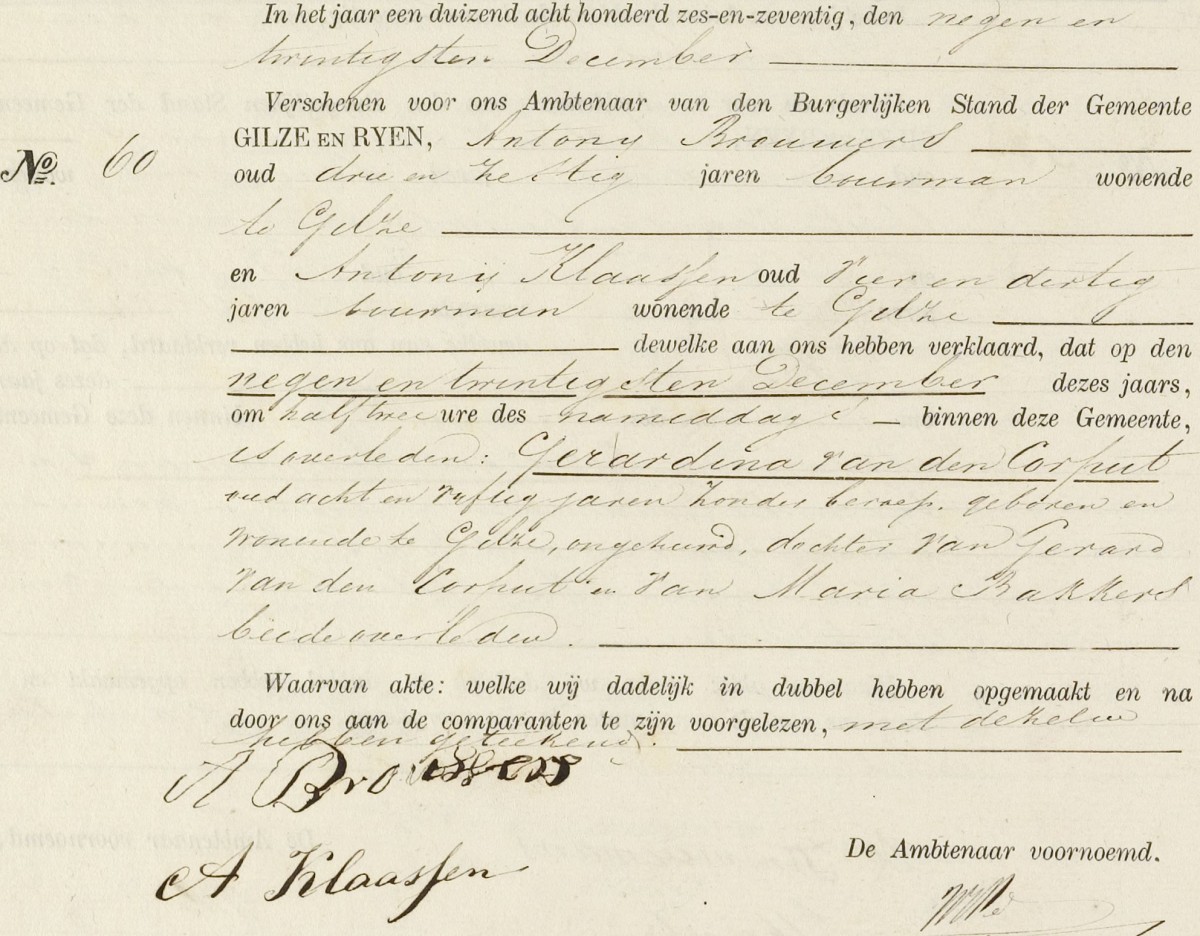 In het jaar een duizend acht honderd zes-en-zeventig, den negen en
twintigsten December
Verschenen voor ons Ambtenaar van den Burgerlijken Stand der Gemeente
GILZE EN RYEN, Antony Brouwers
No. 60
oud drie en zestig jaren bouwman wonende
te Gilze
en Antony Klaassen oud vier en dertig
jaren bouwman wonende te Gilze
dewelke aan ons hebben verklaard, dat op den
negen en twintigsten December dezes jaars,
om half twee ure des namiddags binnen deze Gemeente,
is overleden: Gerardina van den Corput
oud acht en vyftig jaren zonder beroep, geboren en
wonende te Gilze, ongehuwd, dochter van Gerard
van den Corput en van Maria Bakkers
beide overleden.
Waarvan akte: welke wij dadelijk in dubbel hebben opgemaakt en na
door ons aan de comparanten te zijn voorgelezen, met dezelve
hebben geteekend.
A Brouwers
De Ambtenaar voornoemd.
A Klaassen